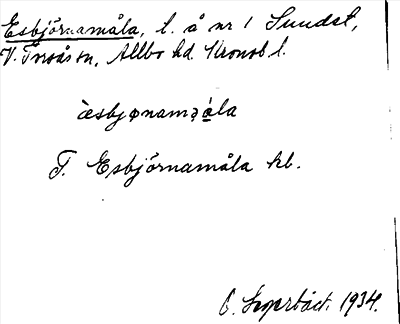 Esbjörnamåla, t. å nr 1 Sundet,
V. Torsås sn, Allbo hd. Kronob l.
æ̀sbjønamǝå̀la
T. Esbjörnamåla kb.
1934.